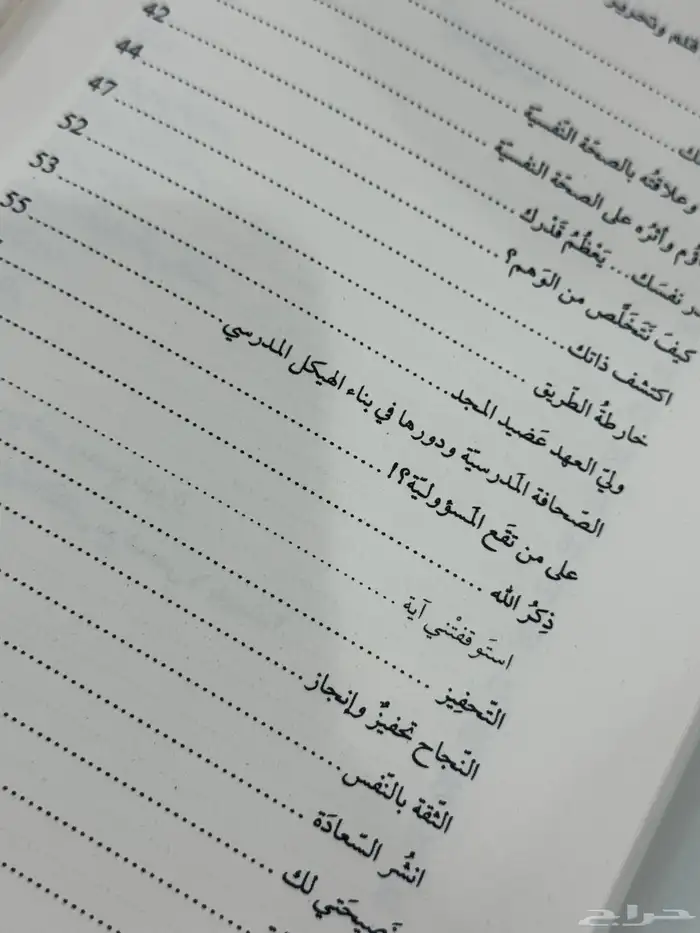 قلم وتحرير
لك
وعلاقته بالصحّة النّفسيّة
42
وأثرُه على الصحّة النفسيّة
44
نفسَك... يَعْظُمُ قَدْرك
47
كيفَ نَتَخَلَّص من الوَهم؟
52
اكتشف ذاتك
53
خارطةُ الطّريق
55
وليّ العهد عَضيد المجد
الصّحافة المَدرسيّة ودورها في بناء الهيكل المدرسي
على من تقَع المَسؤوليّة؟!
ذِكرُ الله
استَوقفتْني آية
التّحفِيز
النّجاح تحفيزٌ وإنجاز
الثّقة بالنّفس
انشُر السّعادَة
نَصيحَتي لك
حراج